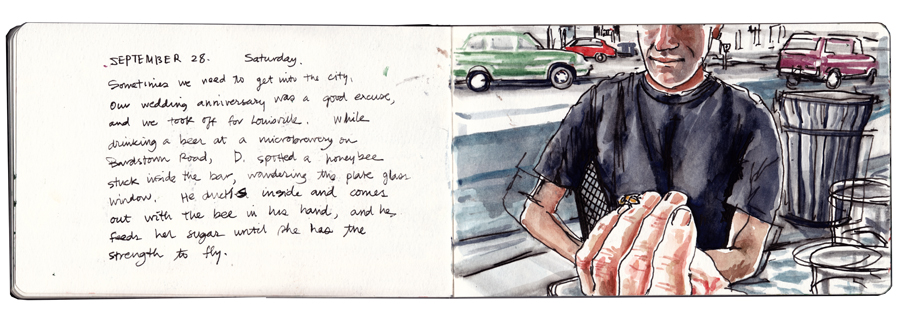 SEPTEMBER 28. Saturday.
Sometimes we need to get into the city.
Our wedding anniversary was a good excuse,
and we took off for Louisville. While
drinking a beer at a microbrewery on
Bardstown Road, D. spotted a honeybee
stuck inside the bar, wandering the plate glass
window. He ducks inside and comes
out with the bee in his hand, and he
feeds her sugar until she has the
strength to fly.